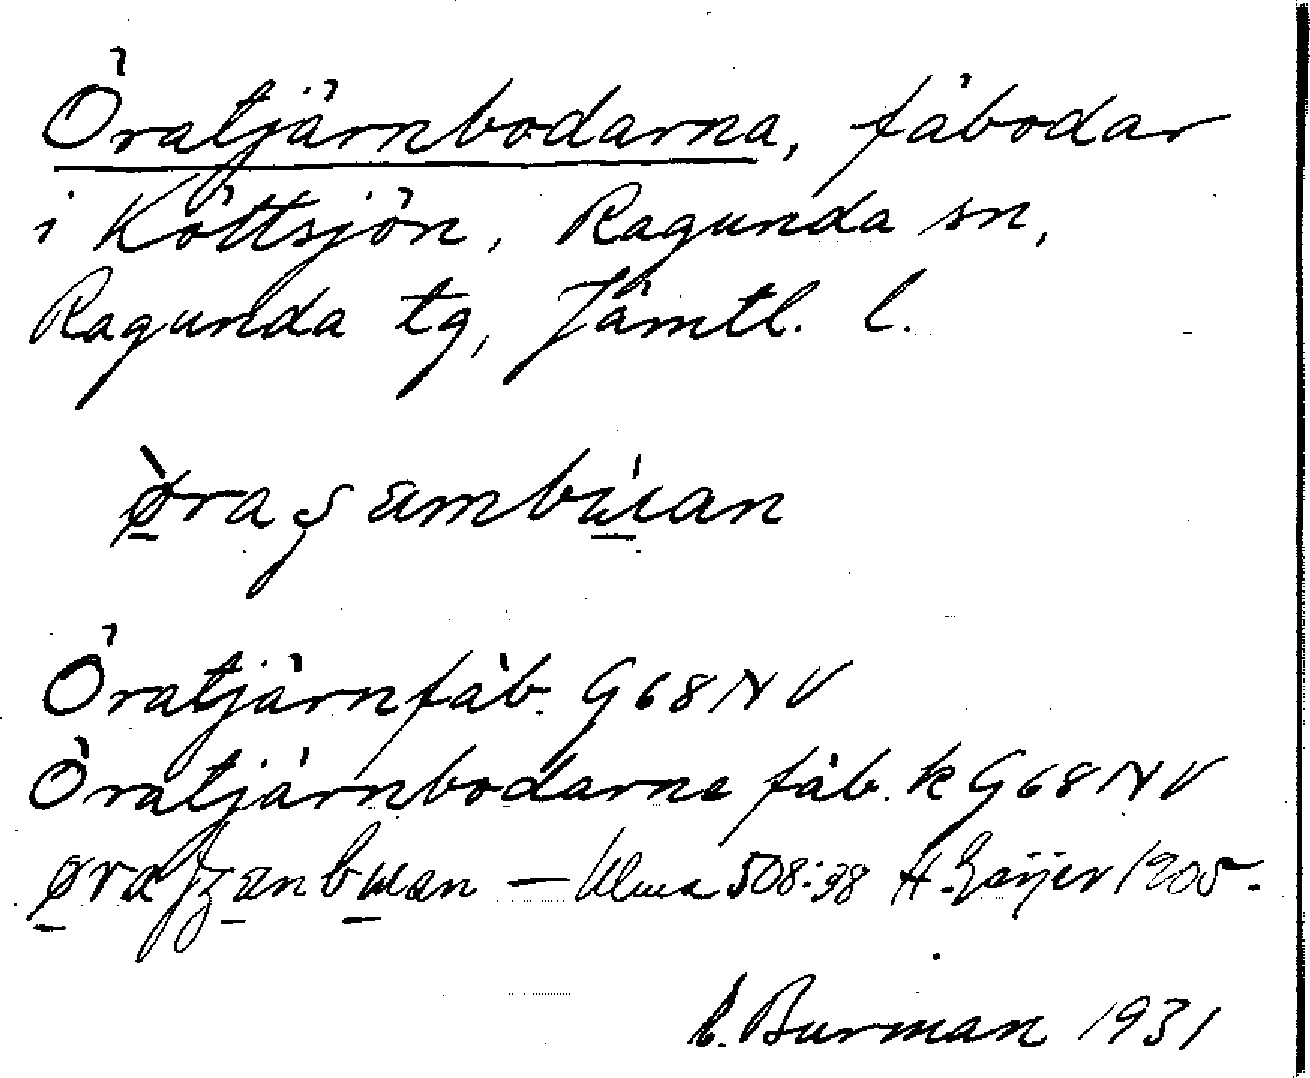 Öratjärnbodarna, fäbodar
i Köttsjön, Ragunda sn,
Ragunda tg, Jämtl. l.
Öratjärnfäb. G68NV
Öratjärnbodarna fäb. k G68NV
— Ulma 508:38 H. Geijer 1905.
Burman 1931